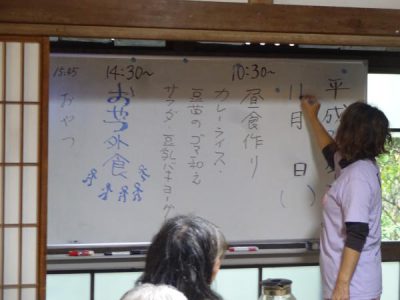 平成
11月 日( )
10:30~
昼食作り
カレーライス・
豆苗のゴマ和え
サラダ・豆乳バナナヨーグ
14:30~
おやつ外食
15:45
おやつ